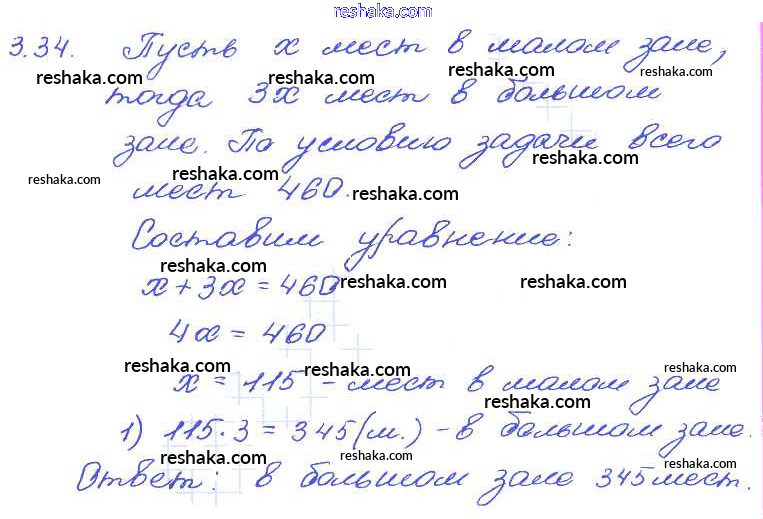 reshaka.com
3.34. Пусть x мест в малом зале,
reshaka.com reshaka.com reshaka.com
тогда 3x мест в большом
зале. По условию задачи всего
reshaka.com reshaka.com reshaka.com
мест 460. reshaka.com
Составим уравнение:
reshaka.com reshaka.com
x + 3x = 460 reshaka.com reshaka.com
4x = 460
reshaka.com reshaka.com reshaka.com
x = 115 - мест в малом зале
reshaka.com
1) 115·3 = 345 (м.) - в большом зале.
Ответ: в большом зале 345 мест.
reshaka.com reshaka.com reshaka.com
reshaka.com